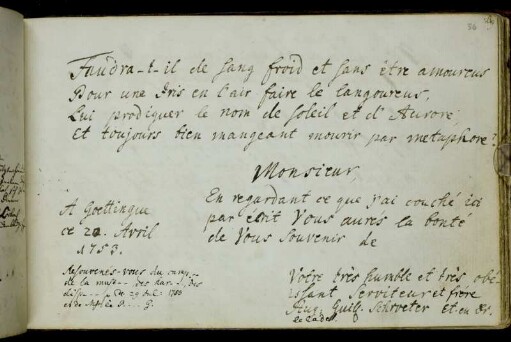 Faudra-t-il de sang froid et sans être amoureus
Pour une Iris en l'air faire le langoureus,
Lui prodiguer le nom de soleil et d'Aurore,
Et toujours bien mangeant mourir par metaphore?
Monsieur
En regardant ce que j'ai couché ici
par écrit Vous aurés la bonté
de Vous souvenir de
A Goettingue
ce 22. Avril
1753.
Resouvenés-vous du
de la des des
de 29 1752
et de
Votre très humble et très obe-
issant Serviteur et frère
Aug. Guill. Schroeter